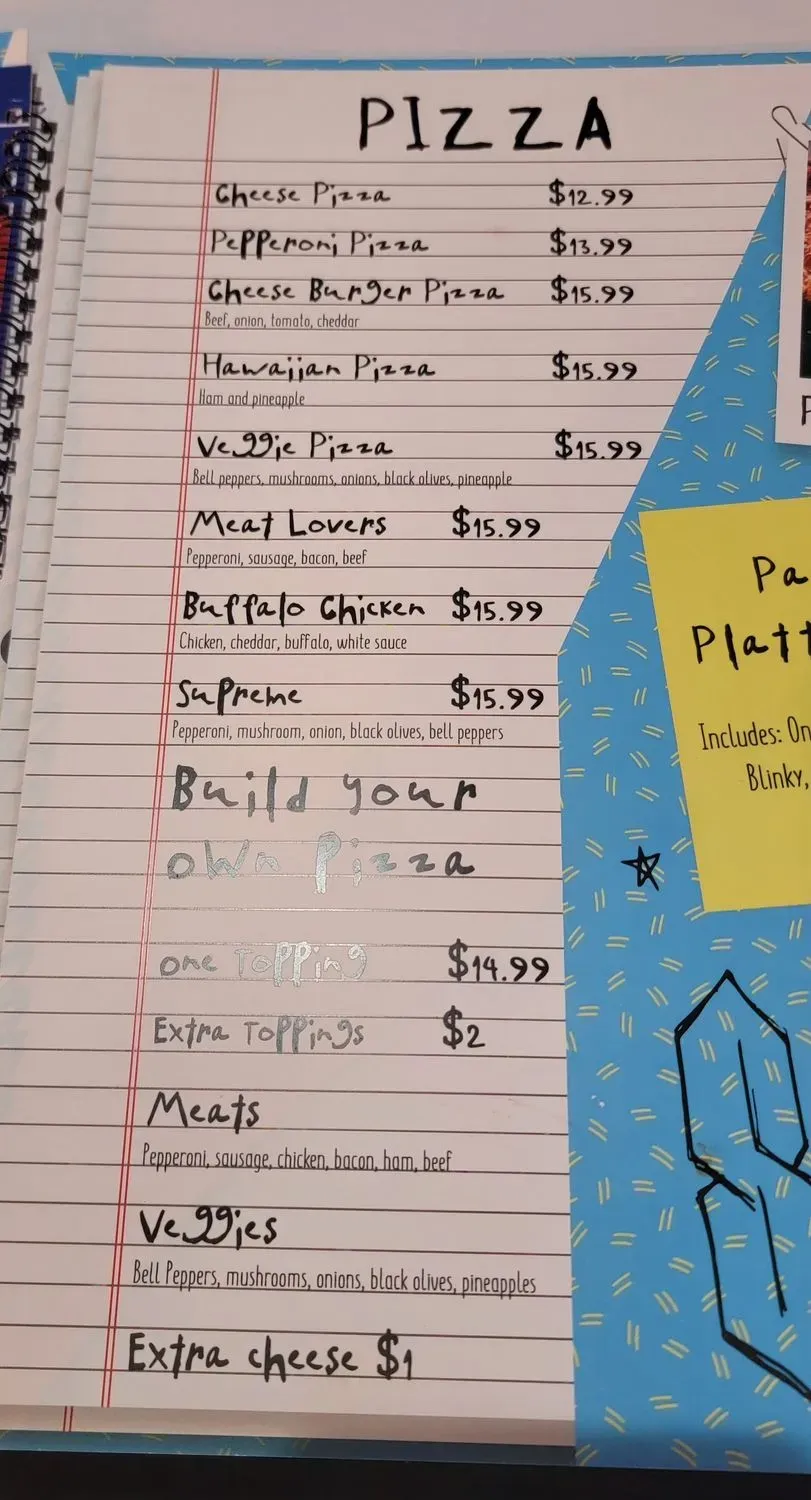 PIZZA
Cheese Pizza $12.99
Pepperoni Pizza $13.99
Cheese Burger Pizza $15.99
Beef, onion, tomato, cheddar
Hawaiian Pizza $15.99
Ham and pineapple
Veggie Pizza $15.99
Bell peppers, mushrooms, onions, black olives, pineapple
Meat Lovers $15.99
Pepperoni, sausage, bacon, beef
Buffalo Chicken $15.99
Chicken, cheddar, buffalo, white sauce
Supreme $15.99
Pepperoni, mushroom, onion, black olives, bell peppers
Build your
own Pizza
one Topping $14.99
Extra Toppings $2
Meats
Pepperoni, sausage, chicken, bacon, ham, beef
Veggies
Bell Peppers, mushrooms, onions, black olives, pineapples
Extra cheese $1
Includes:
Blinky,